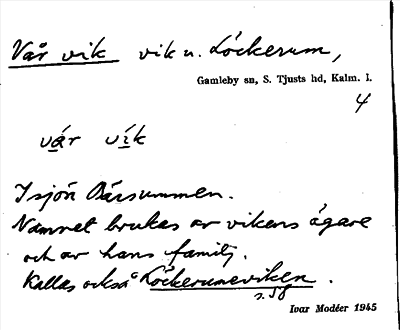 Vår vik vik u. Löckerum,
Gamleby sn, S. Tjusts hd, Kalm. l.
4
vár vík
I sjön Bärsummen.
Namnet brukas av vikens ägare
och av hans familj.
Kallas också Löckerumeviken.
s. 58
Ivar Modéer 1945